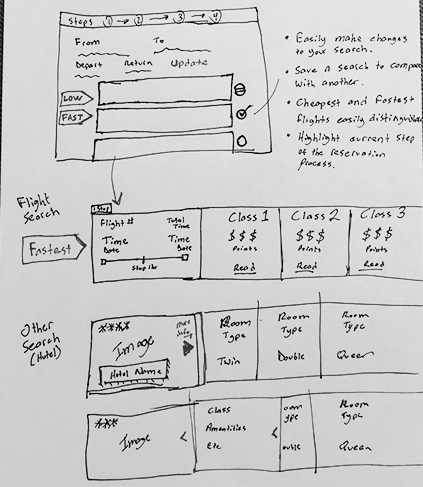 Steps 1 → 2 → 3 → 4
From To
Depart Return Update
LOW
FAST
• Easily make changes
to your search.
• Save a search to compare
with another.
• Cheapest and fastest
flights easily distinguished
• Highlight current step
of the reservation
process.
Flight
Search
Fastest
1 Stop
Flight # Total
Time
Time Time
Date Date
Stop 1hr
Class 1 Class 2 Class 3
$$$ $$$ $$$
Points Points Points
Read Read Read
Other
Search
(Hotel)
****
Image
Hotel Name
More
info
Room Room Room
Type Type Type
Twin Double Queen
***
Image <
Class
Amenities <
Etc
oom Room
ype Type
ouble Queen